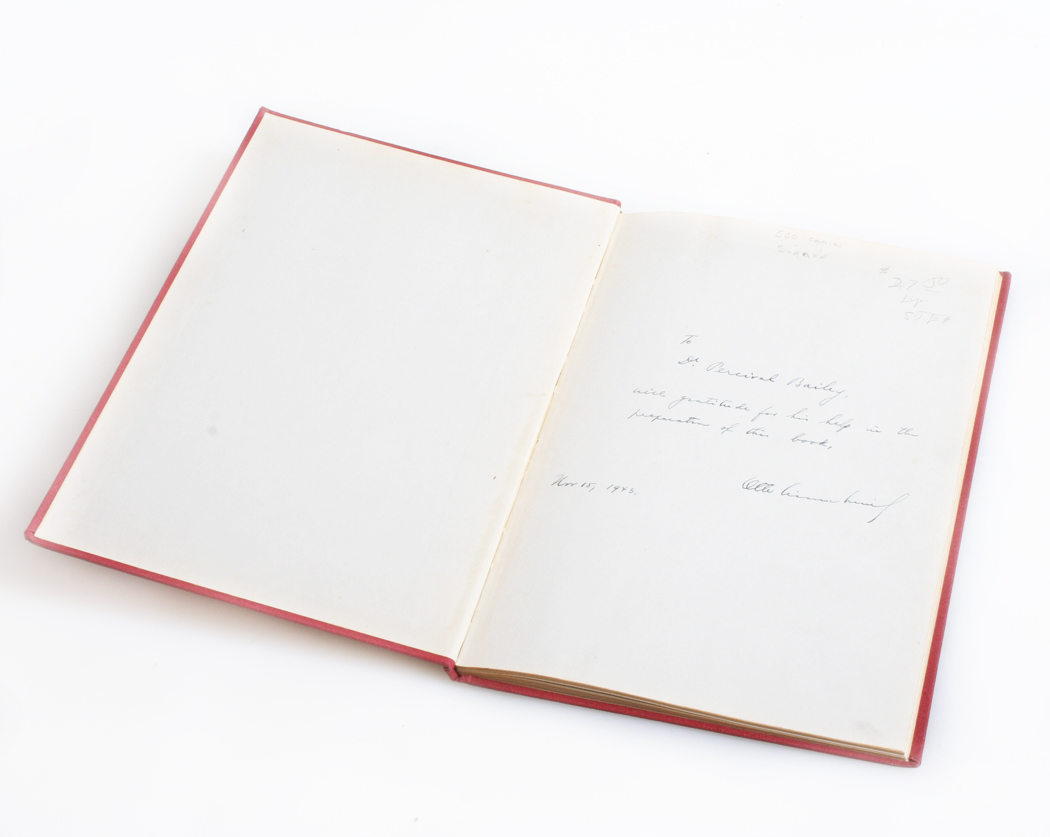 500 copies
$27.50
To
Dr. Percival Bailey,
with gratitude for his help in the
preparation of this book,
Nov 15, 1943.
Otto